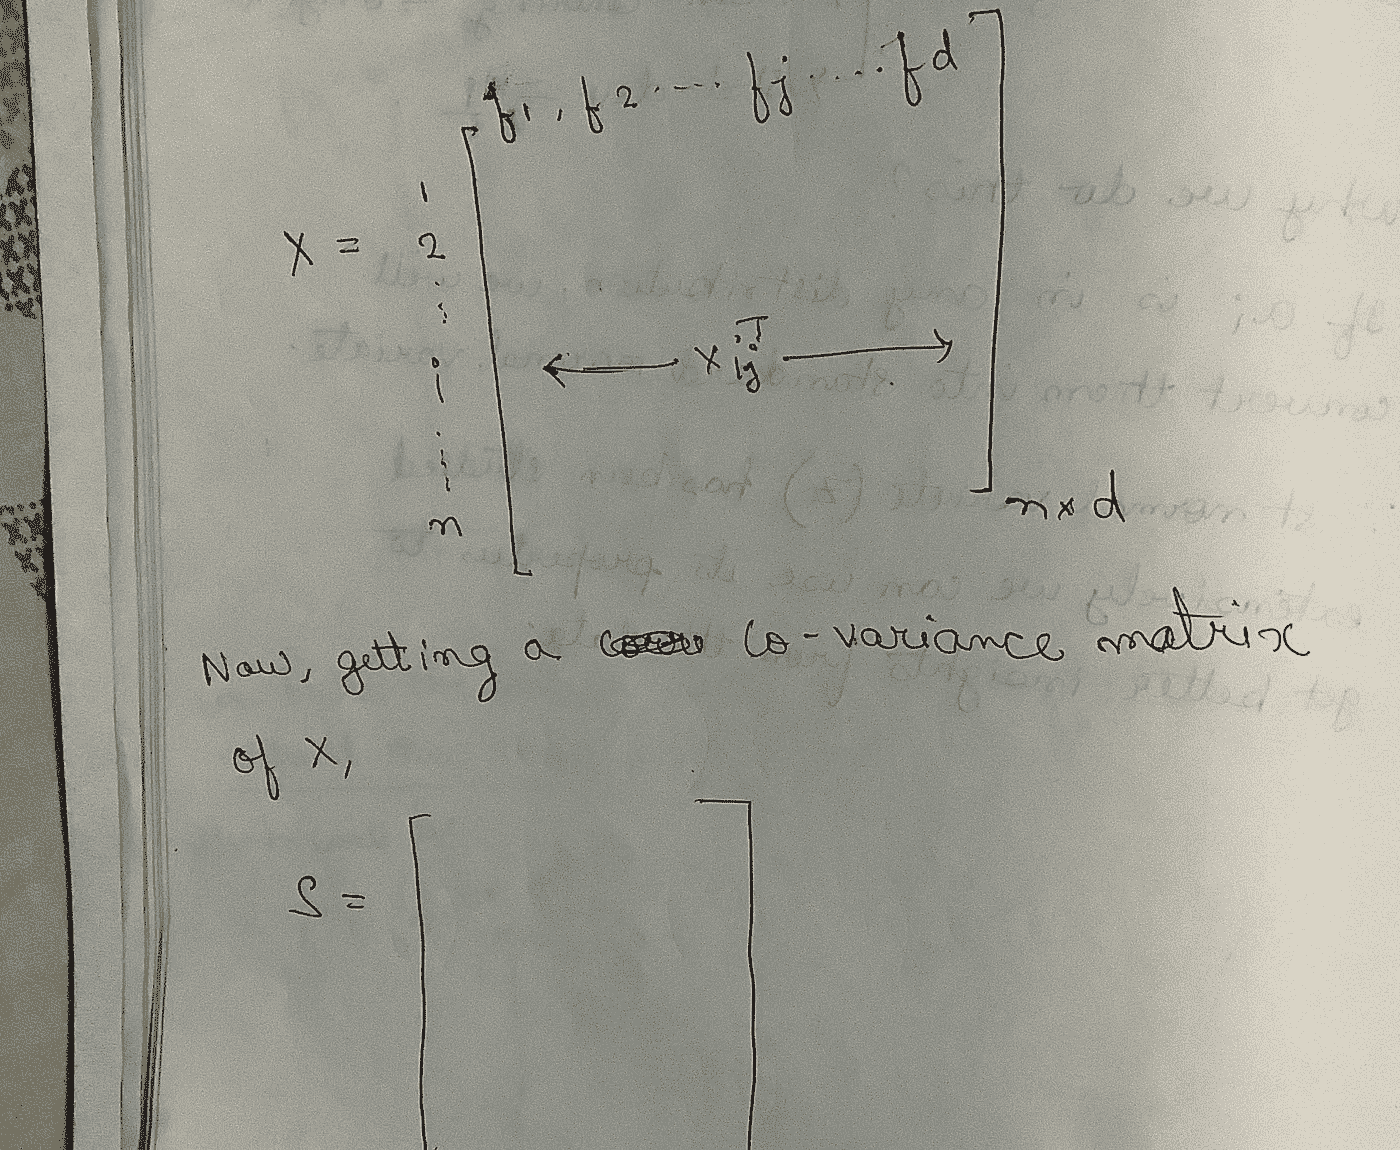 f1, f2 ---- fj ..... fd
1
X = 2
i
xijT
n
n x d
Now, getting a co-variance matrix
of X,
S =